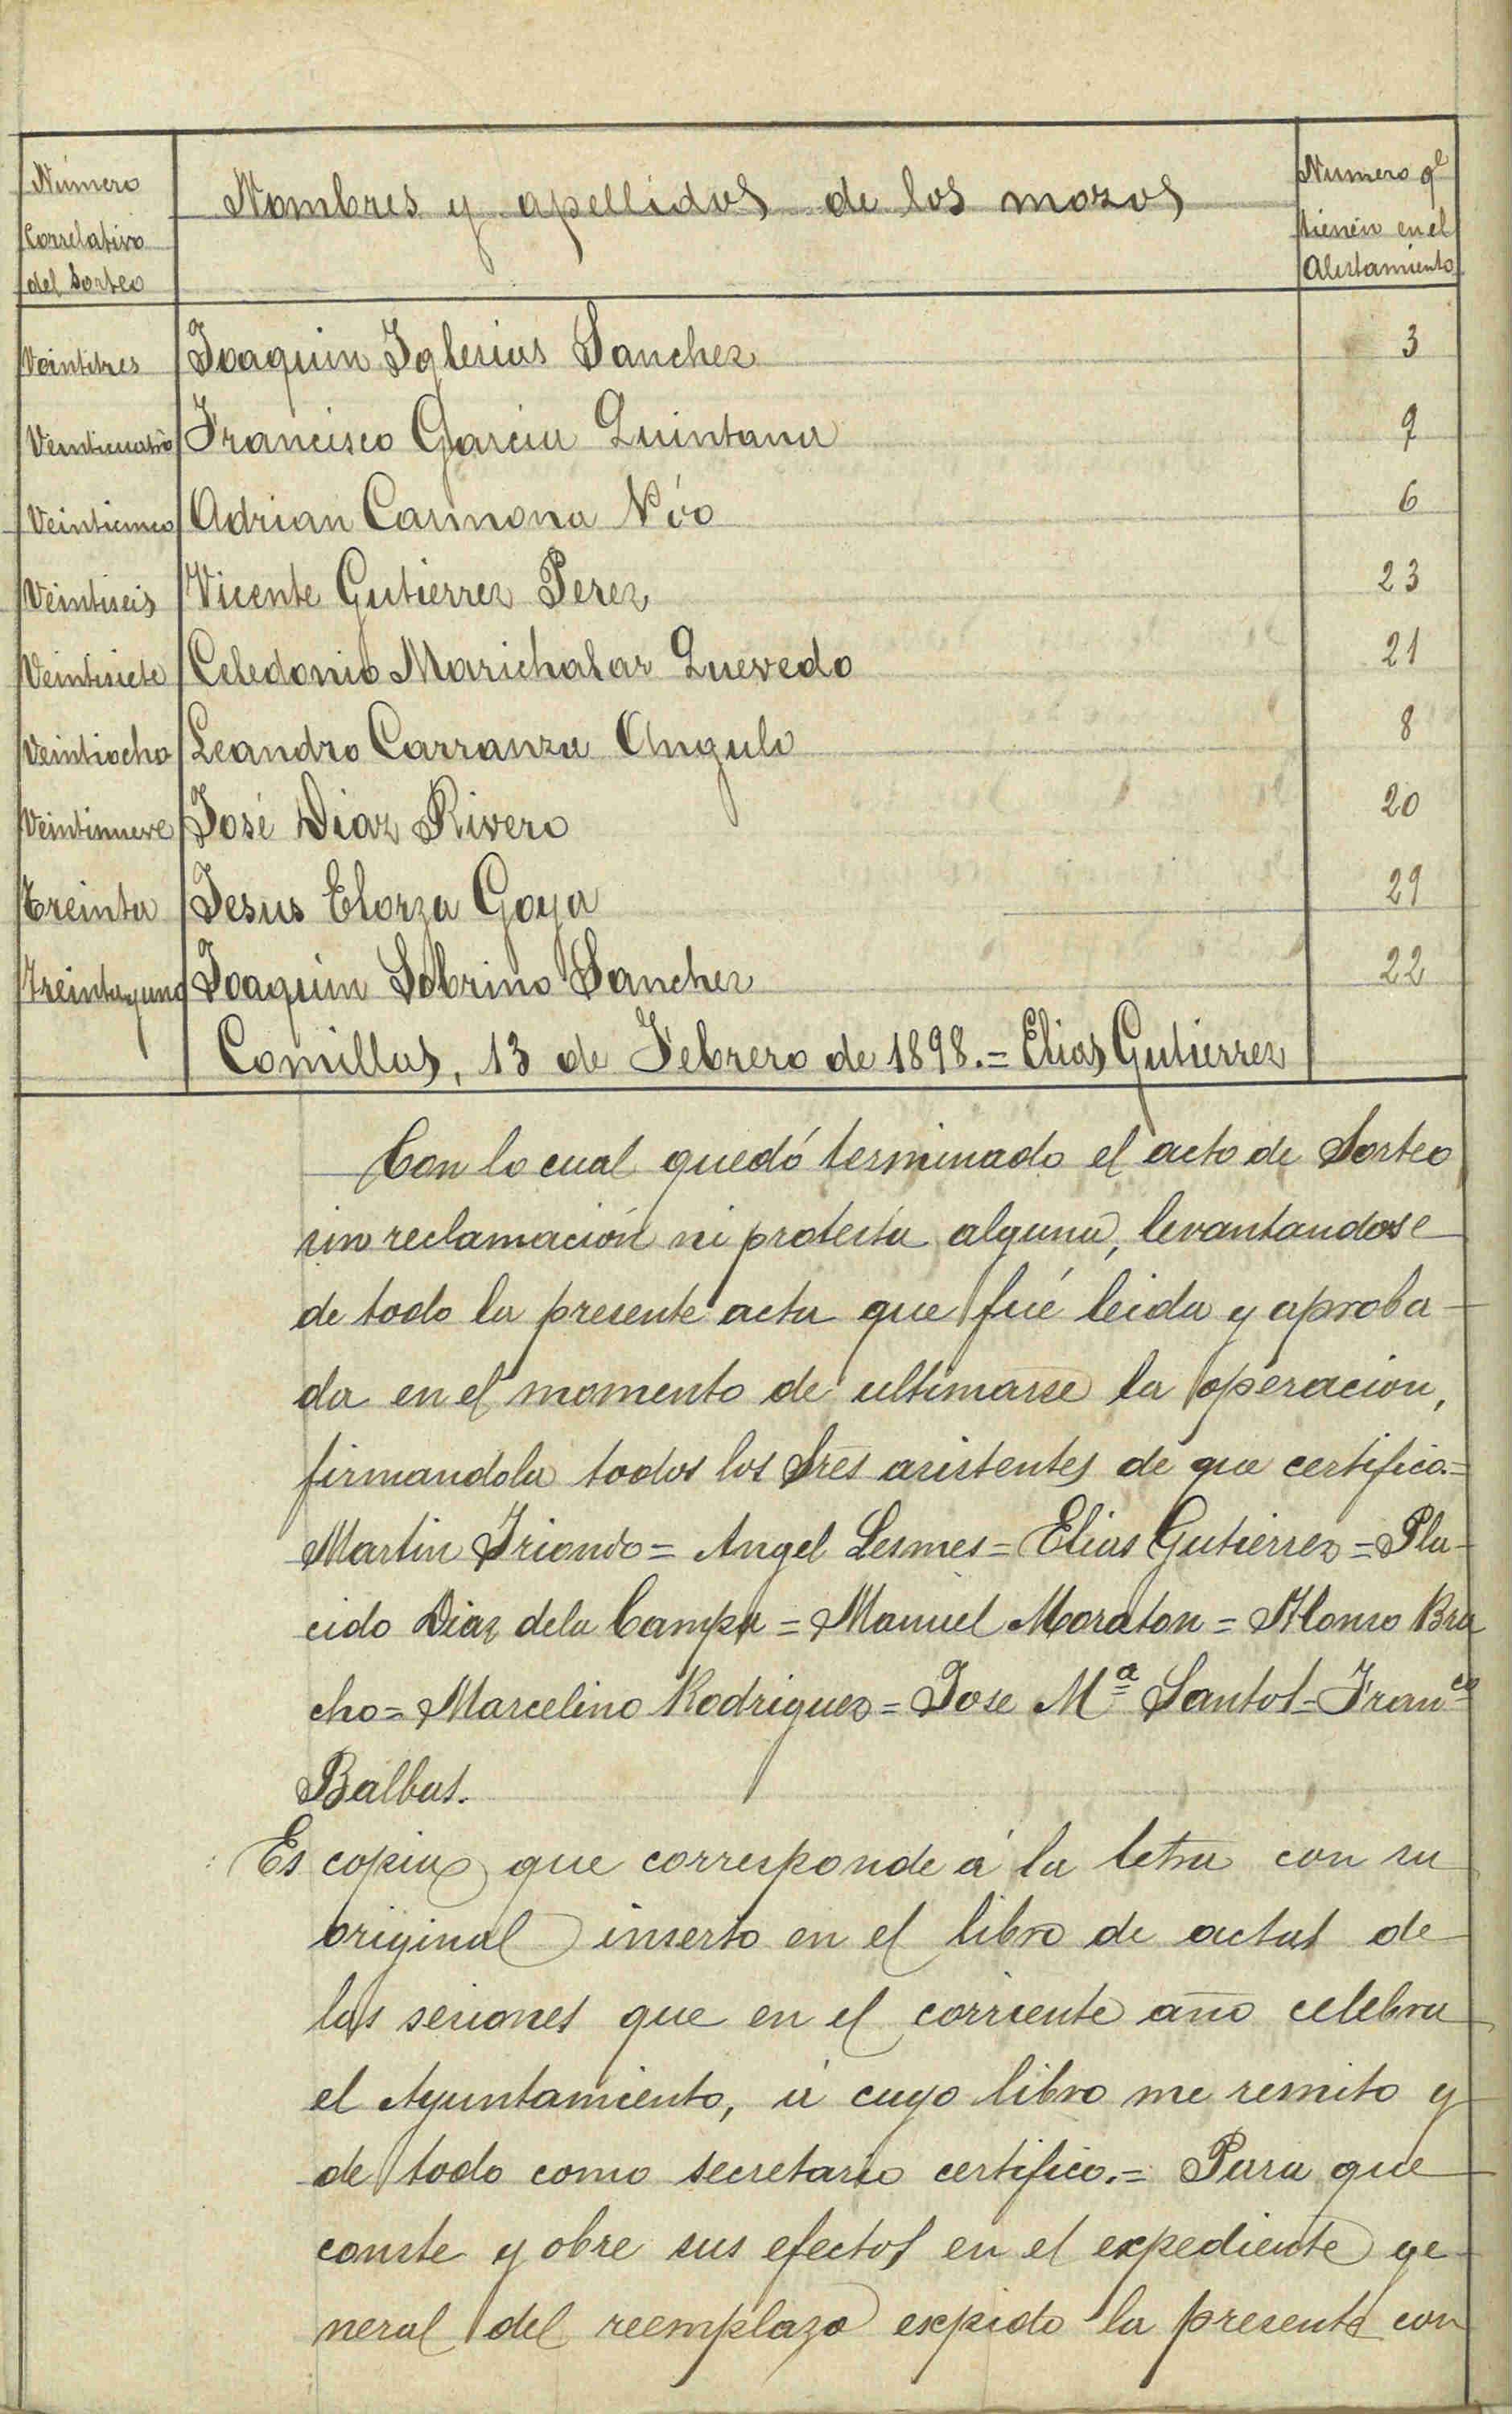 Número Correlativo del Sorteo | Nombres y apellidos de los mozos | Numero qe tienen en el Alistamiento
Veintitres | Joaquin Iglesias Sanchez | 3
Veinticuatro | Francisco Garcia Quintana | 9
Veinticinco | Adrian Carmona Nóo | 6
Veintiseis | Vicente Gutierrez Perez | 23
Veintisiete | Celedonio Marichalar Quevedo | 21
Veintiocho | Leandro Carranza Angulo | 8
Veintinueve | José Diaz Rivero | 20
Treinta | Jesus Elorza Goya | 29
Treinta y uno | Joaquin Sobrino Sanchez | 22
Comillas, 13 de Febrero de 1898.= Elias Gutierrez
Con lo cual quedó terminado el acto de Sorteo
sin reclamación ni protesta alguna, levantandose
de todo la presente acta que fué leida y aproba-
da en el momento de ultimarse la operacion,
firmandola todos los Sres asistentes de que certifico.=
Martin Iriondo = Angel Lesmes = Elias Gutierrez = Pla-
cido Diaz dela Campa = Manuel Moraton = Alonso Bra
cho = Marcelino Rodriguez = Jose Mª Santos = Franco
Balbas.
Es copia que corresponde á la letra con su
original inserto en el libro de actas de
las sesiones que en el corriente año celebra
el Ayuntamiento, á cuyo libro me remito y
de todo como secretario certifico.= Para que
conste y obre sus efectos en el expediente ge-
neral del reemplazo expido la presente con